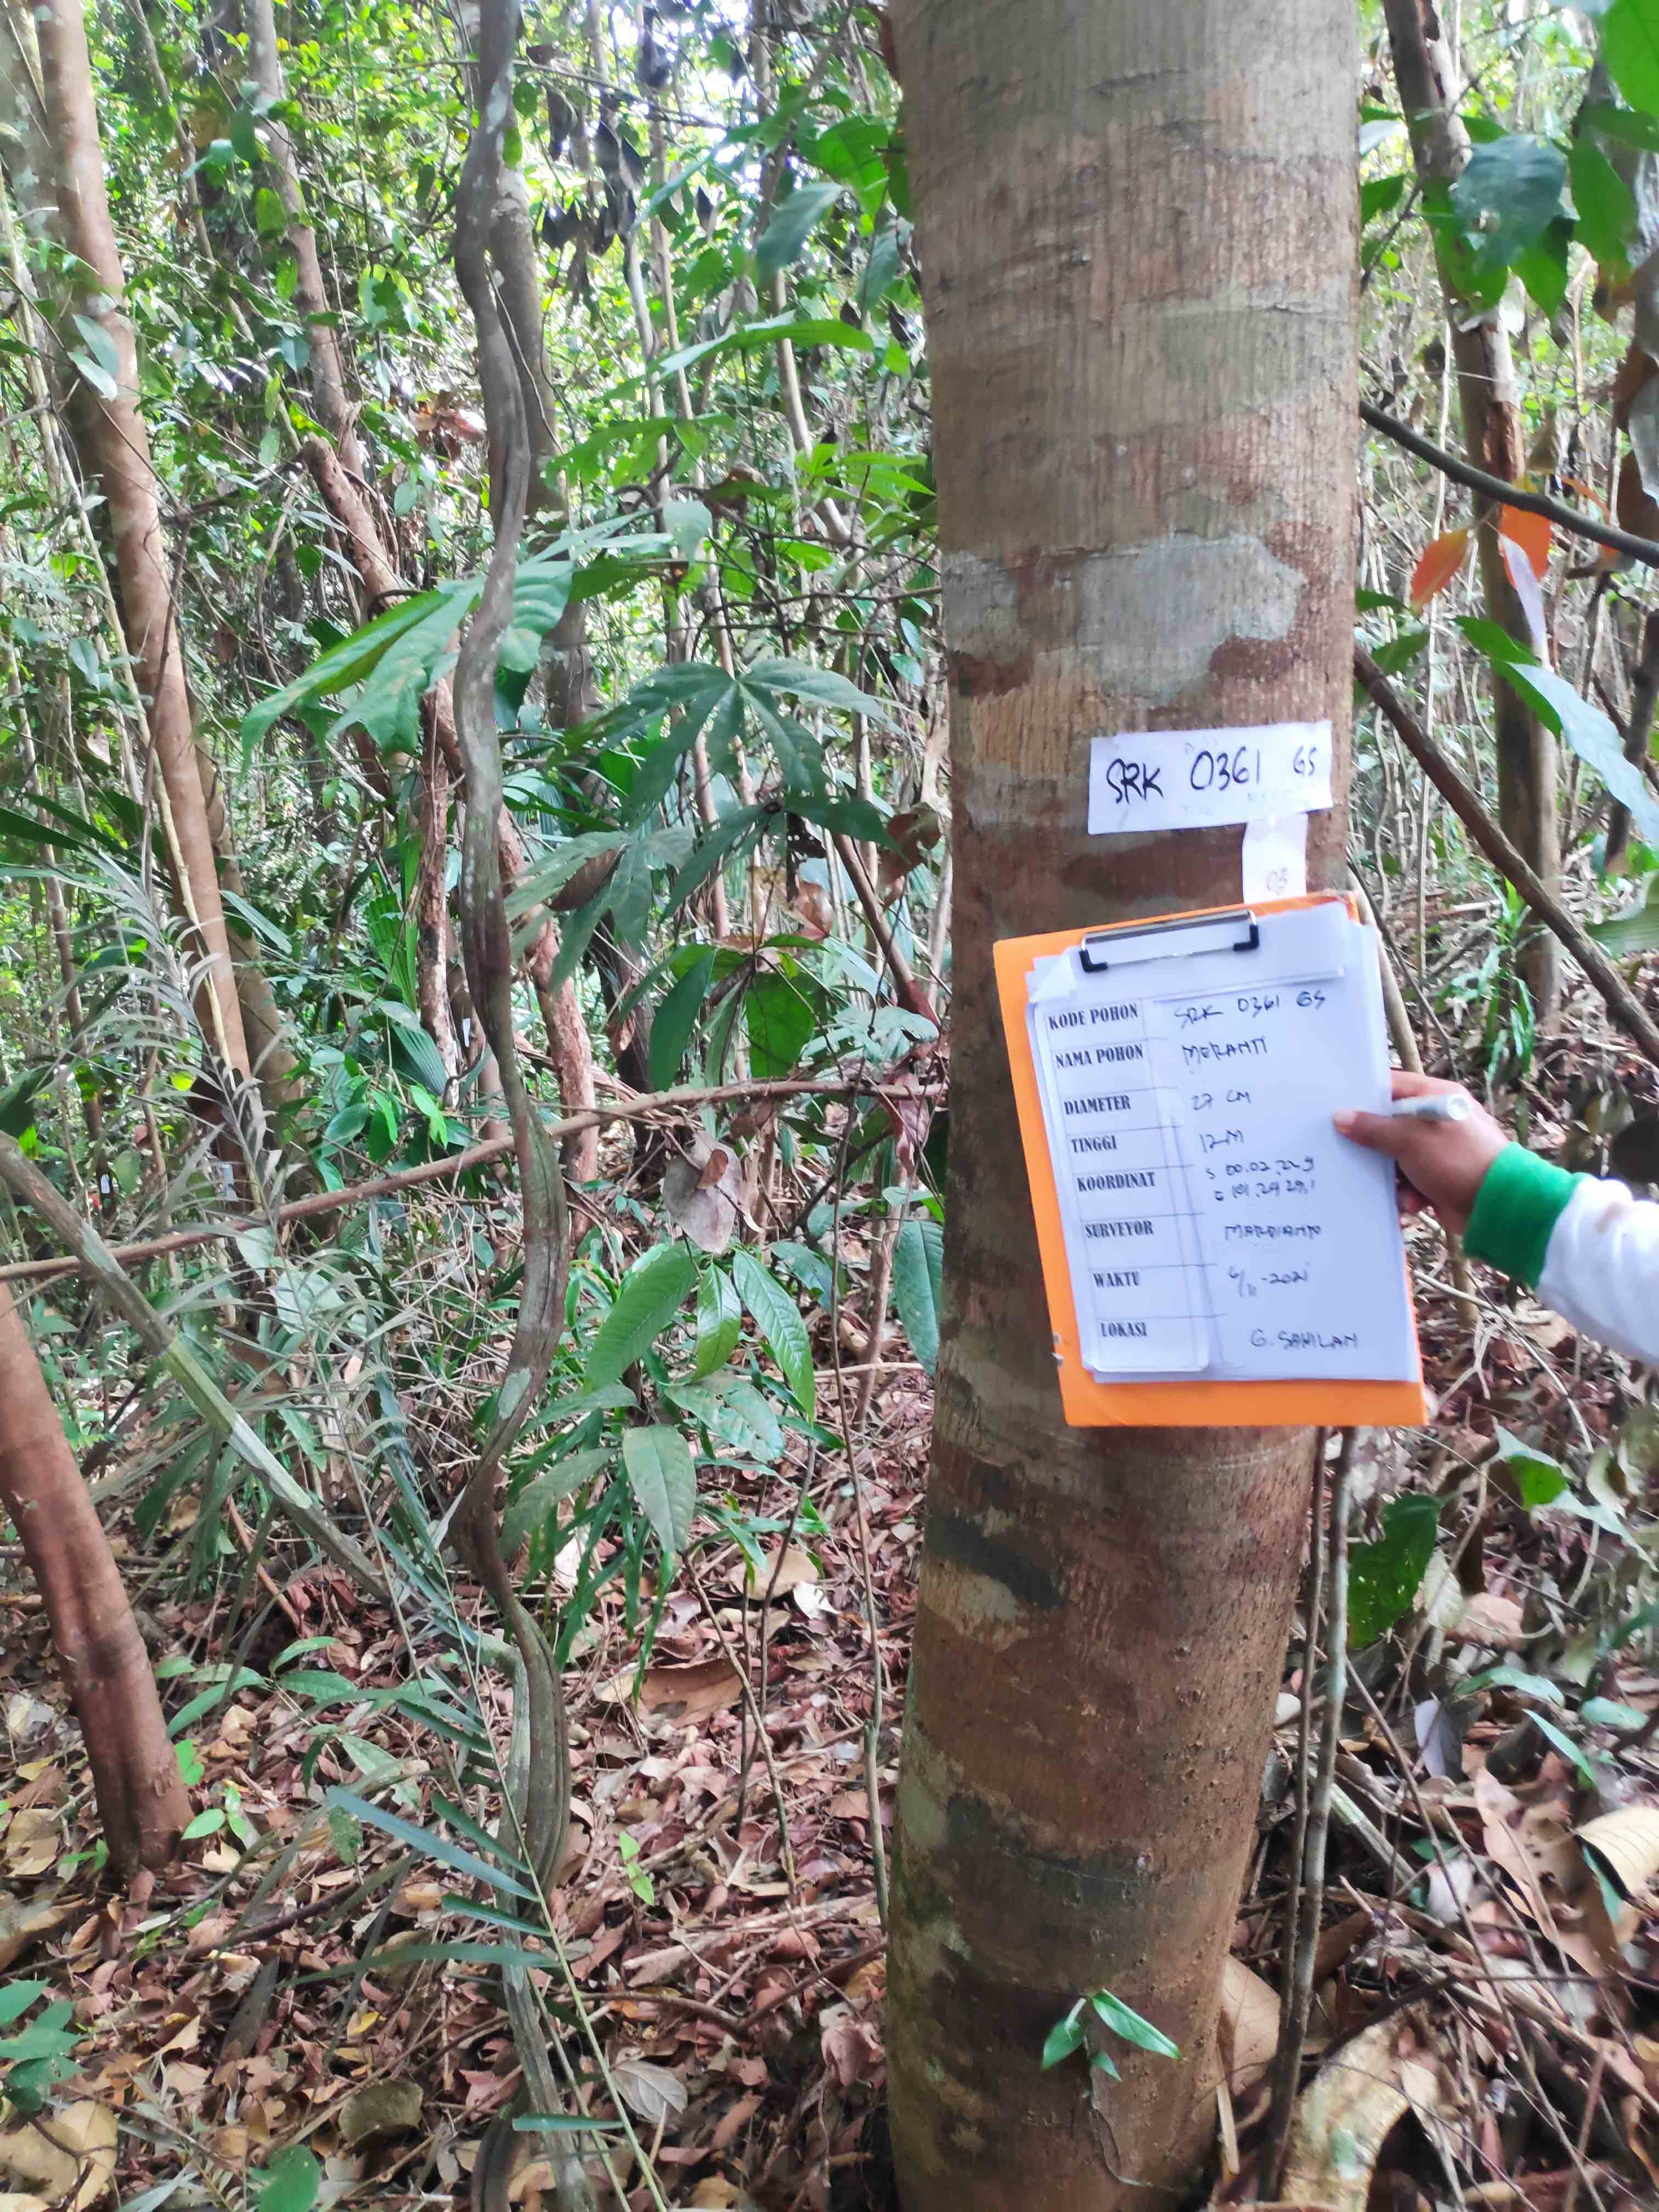 SRK 0361 GS
03
KODE POHON SRK 0361 GS
NAMA POHON MERANTI
DIAMETER 27 CM
TINGGI 12 M
KOORDINAT S 00.02.22.9
E 101.24 29.1
SURVEYOR MARDIANTO
WAKTU 4/11-2021
LOKASI G. SAHILAN